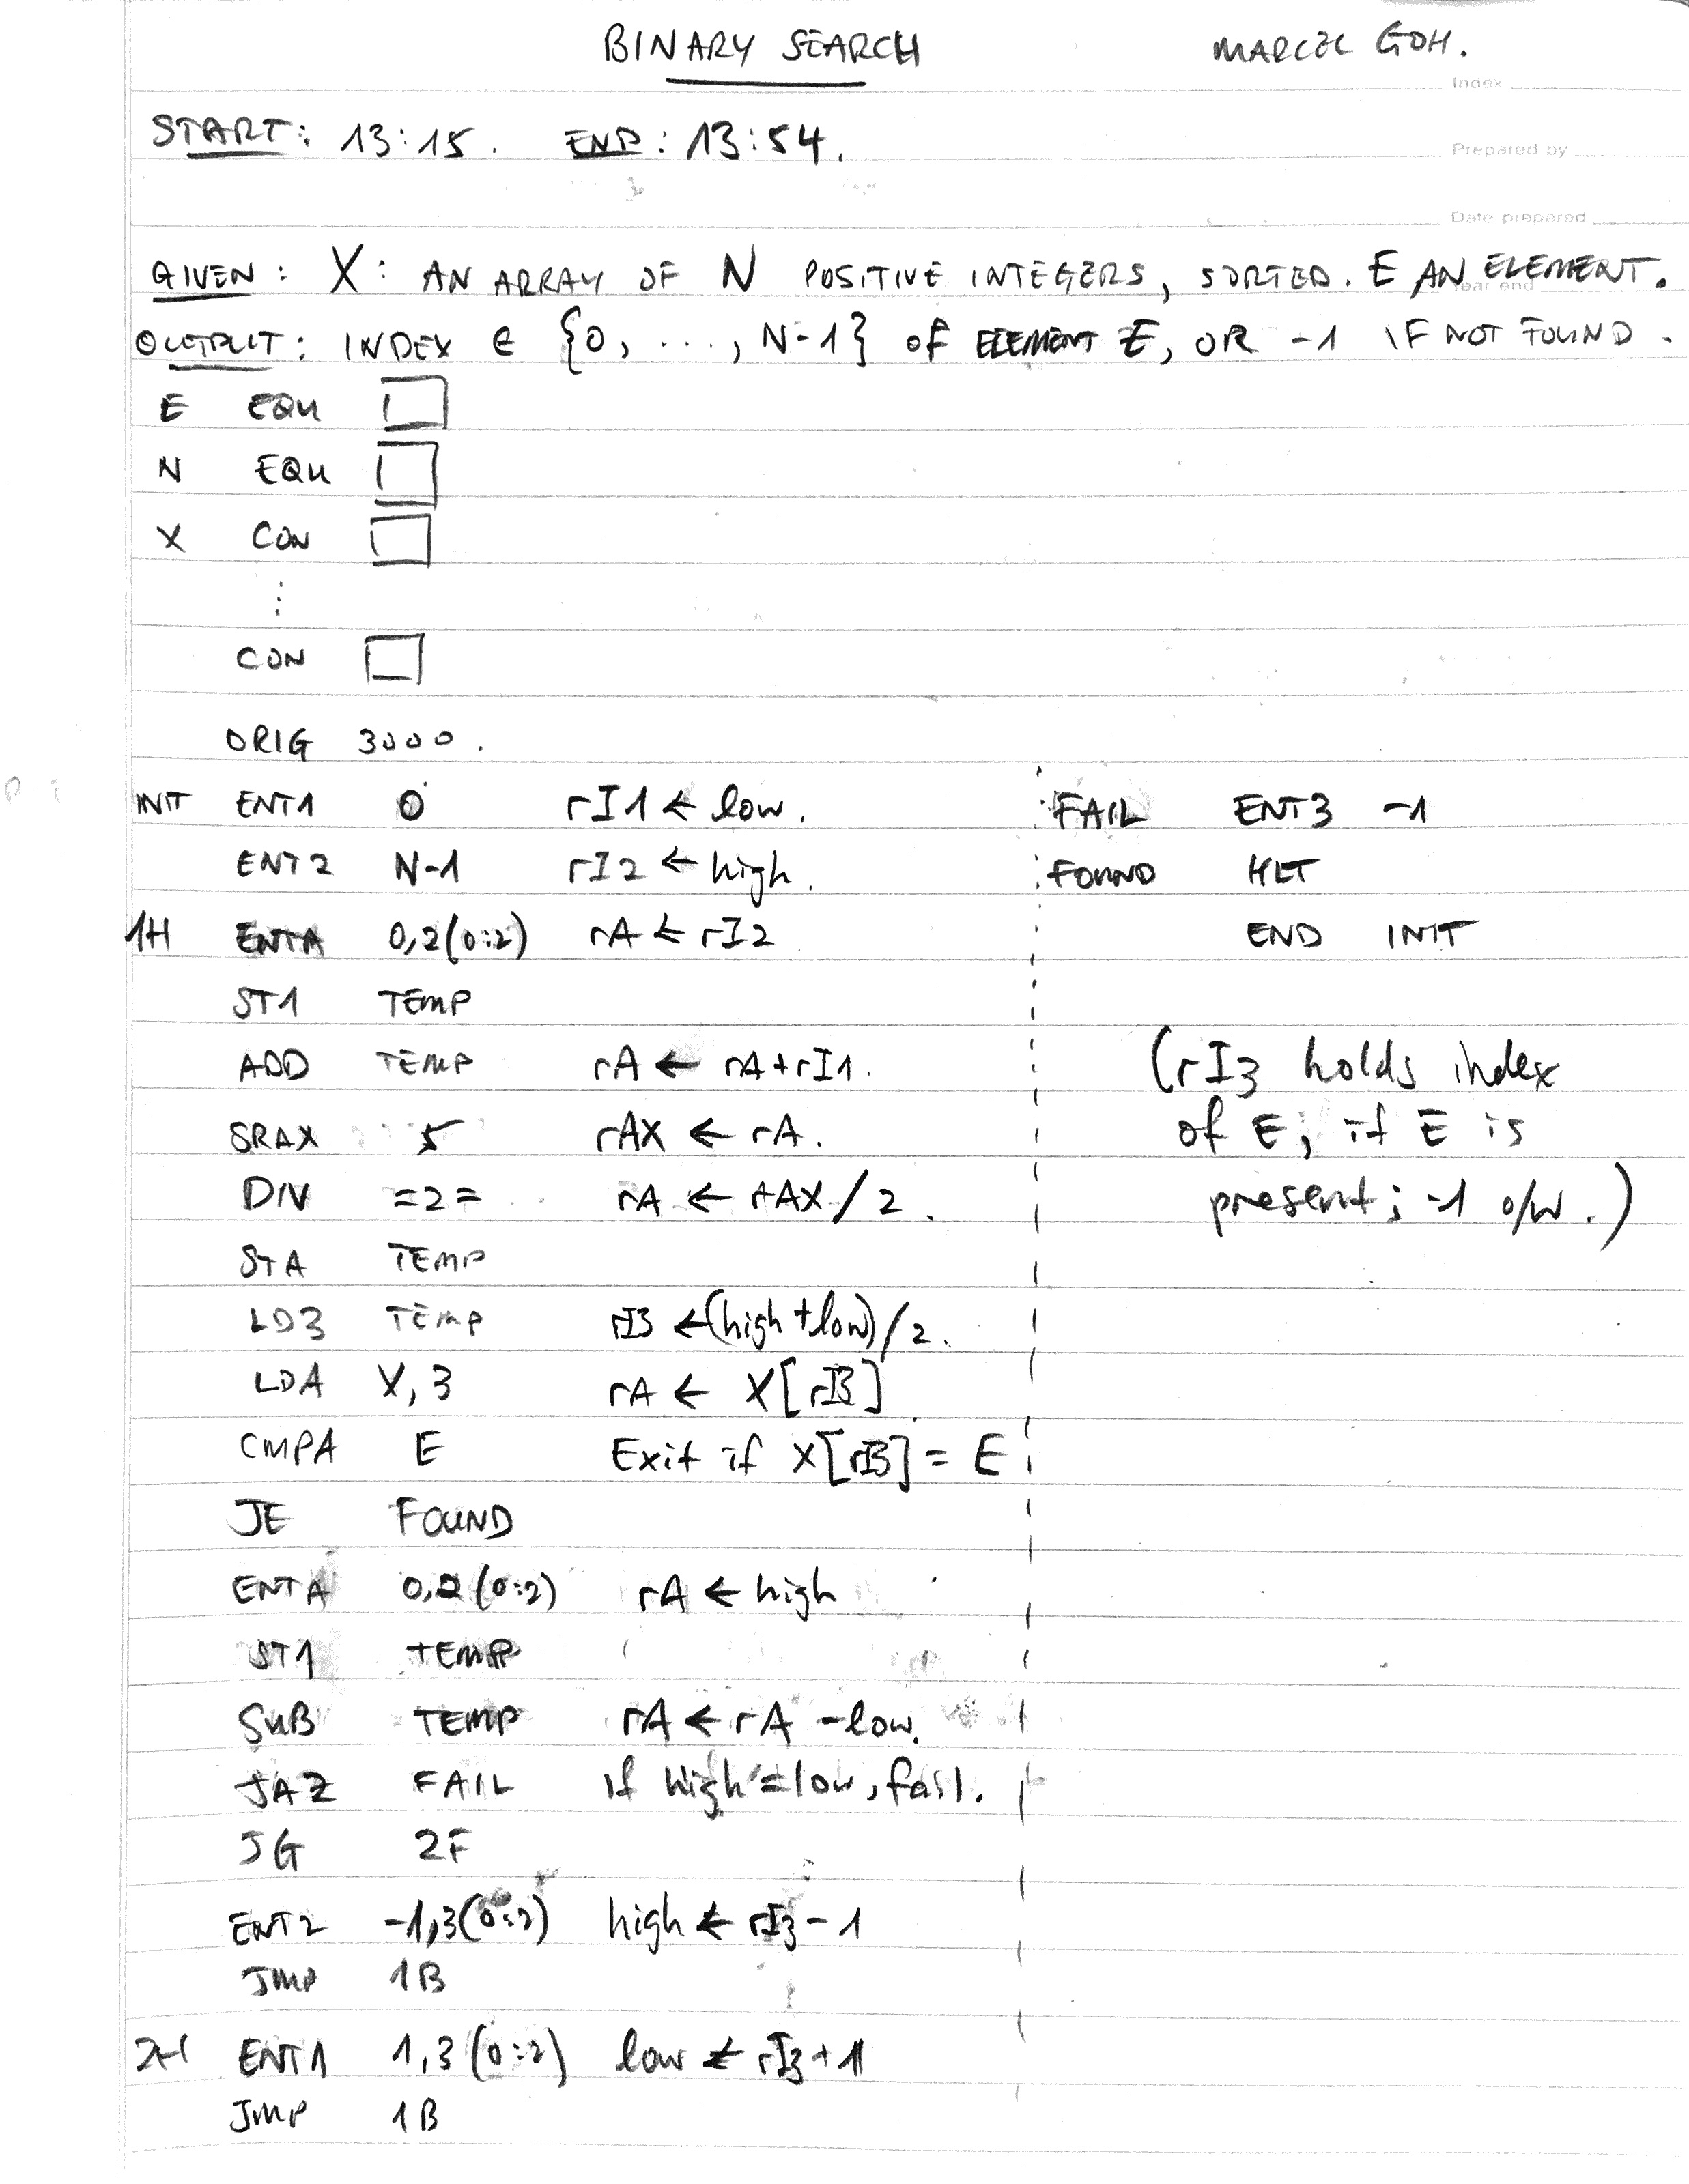 BINARY SEARCH MARCEL GOH.
Index
START: 13:15. END: 13:54.
Prepared by
Date prepared
GIVEN: X: AN ARRAY OF N POSITIVE INTEGERS, SORTED. E AN ELEMENT.
Year end
OUTPUT: INDEX ∈ {0, ..., N-1} OF ELEMENT E, OR -1 IF NOT FOUND.
E EQU
N EQU
X CON
⋮
CON
ORIG 3000.
INIT ENT1 0 rI1 ← low.
ENT2 N-1 rI2 ← high.
1H ENTA 0,2(0:2) rA ← rI2
ST1 TEMP
ADD TEMP rA ← rA+rI1.
SRAX 5 rAX ← rA.
DIV =2= rA ← rAX/2.
STA TEMP
LD3 TEMP rI3 ← (high+low)/2.
LDA X,3 rA ← X[rI3]
CMPA E Exit if X[rI3] = E
JE FOUND
ENTA 0,2(0:2) rA ← high
ST1 TEMP
SUB TEMP rA ← rA - low.
JAZ FAIL if high = low, fail.
JG 2F
ENT2 -1,3(0:2) high ← rI3 - 1
JMP 1B
2H ENT1 1,3(0:2) low ← rI3 + 1
JMP 1B
FAIL ENT3 -1
FOUND HLT
END INIT
(rI3 holds index
of E, if E is
present; -1 o/w.)